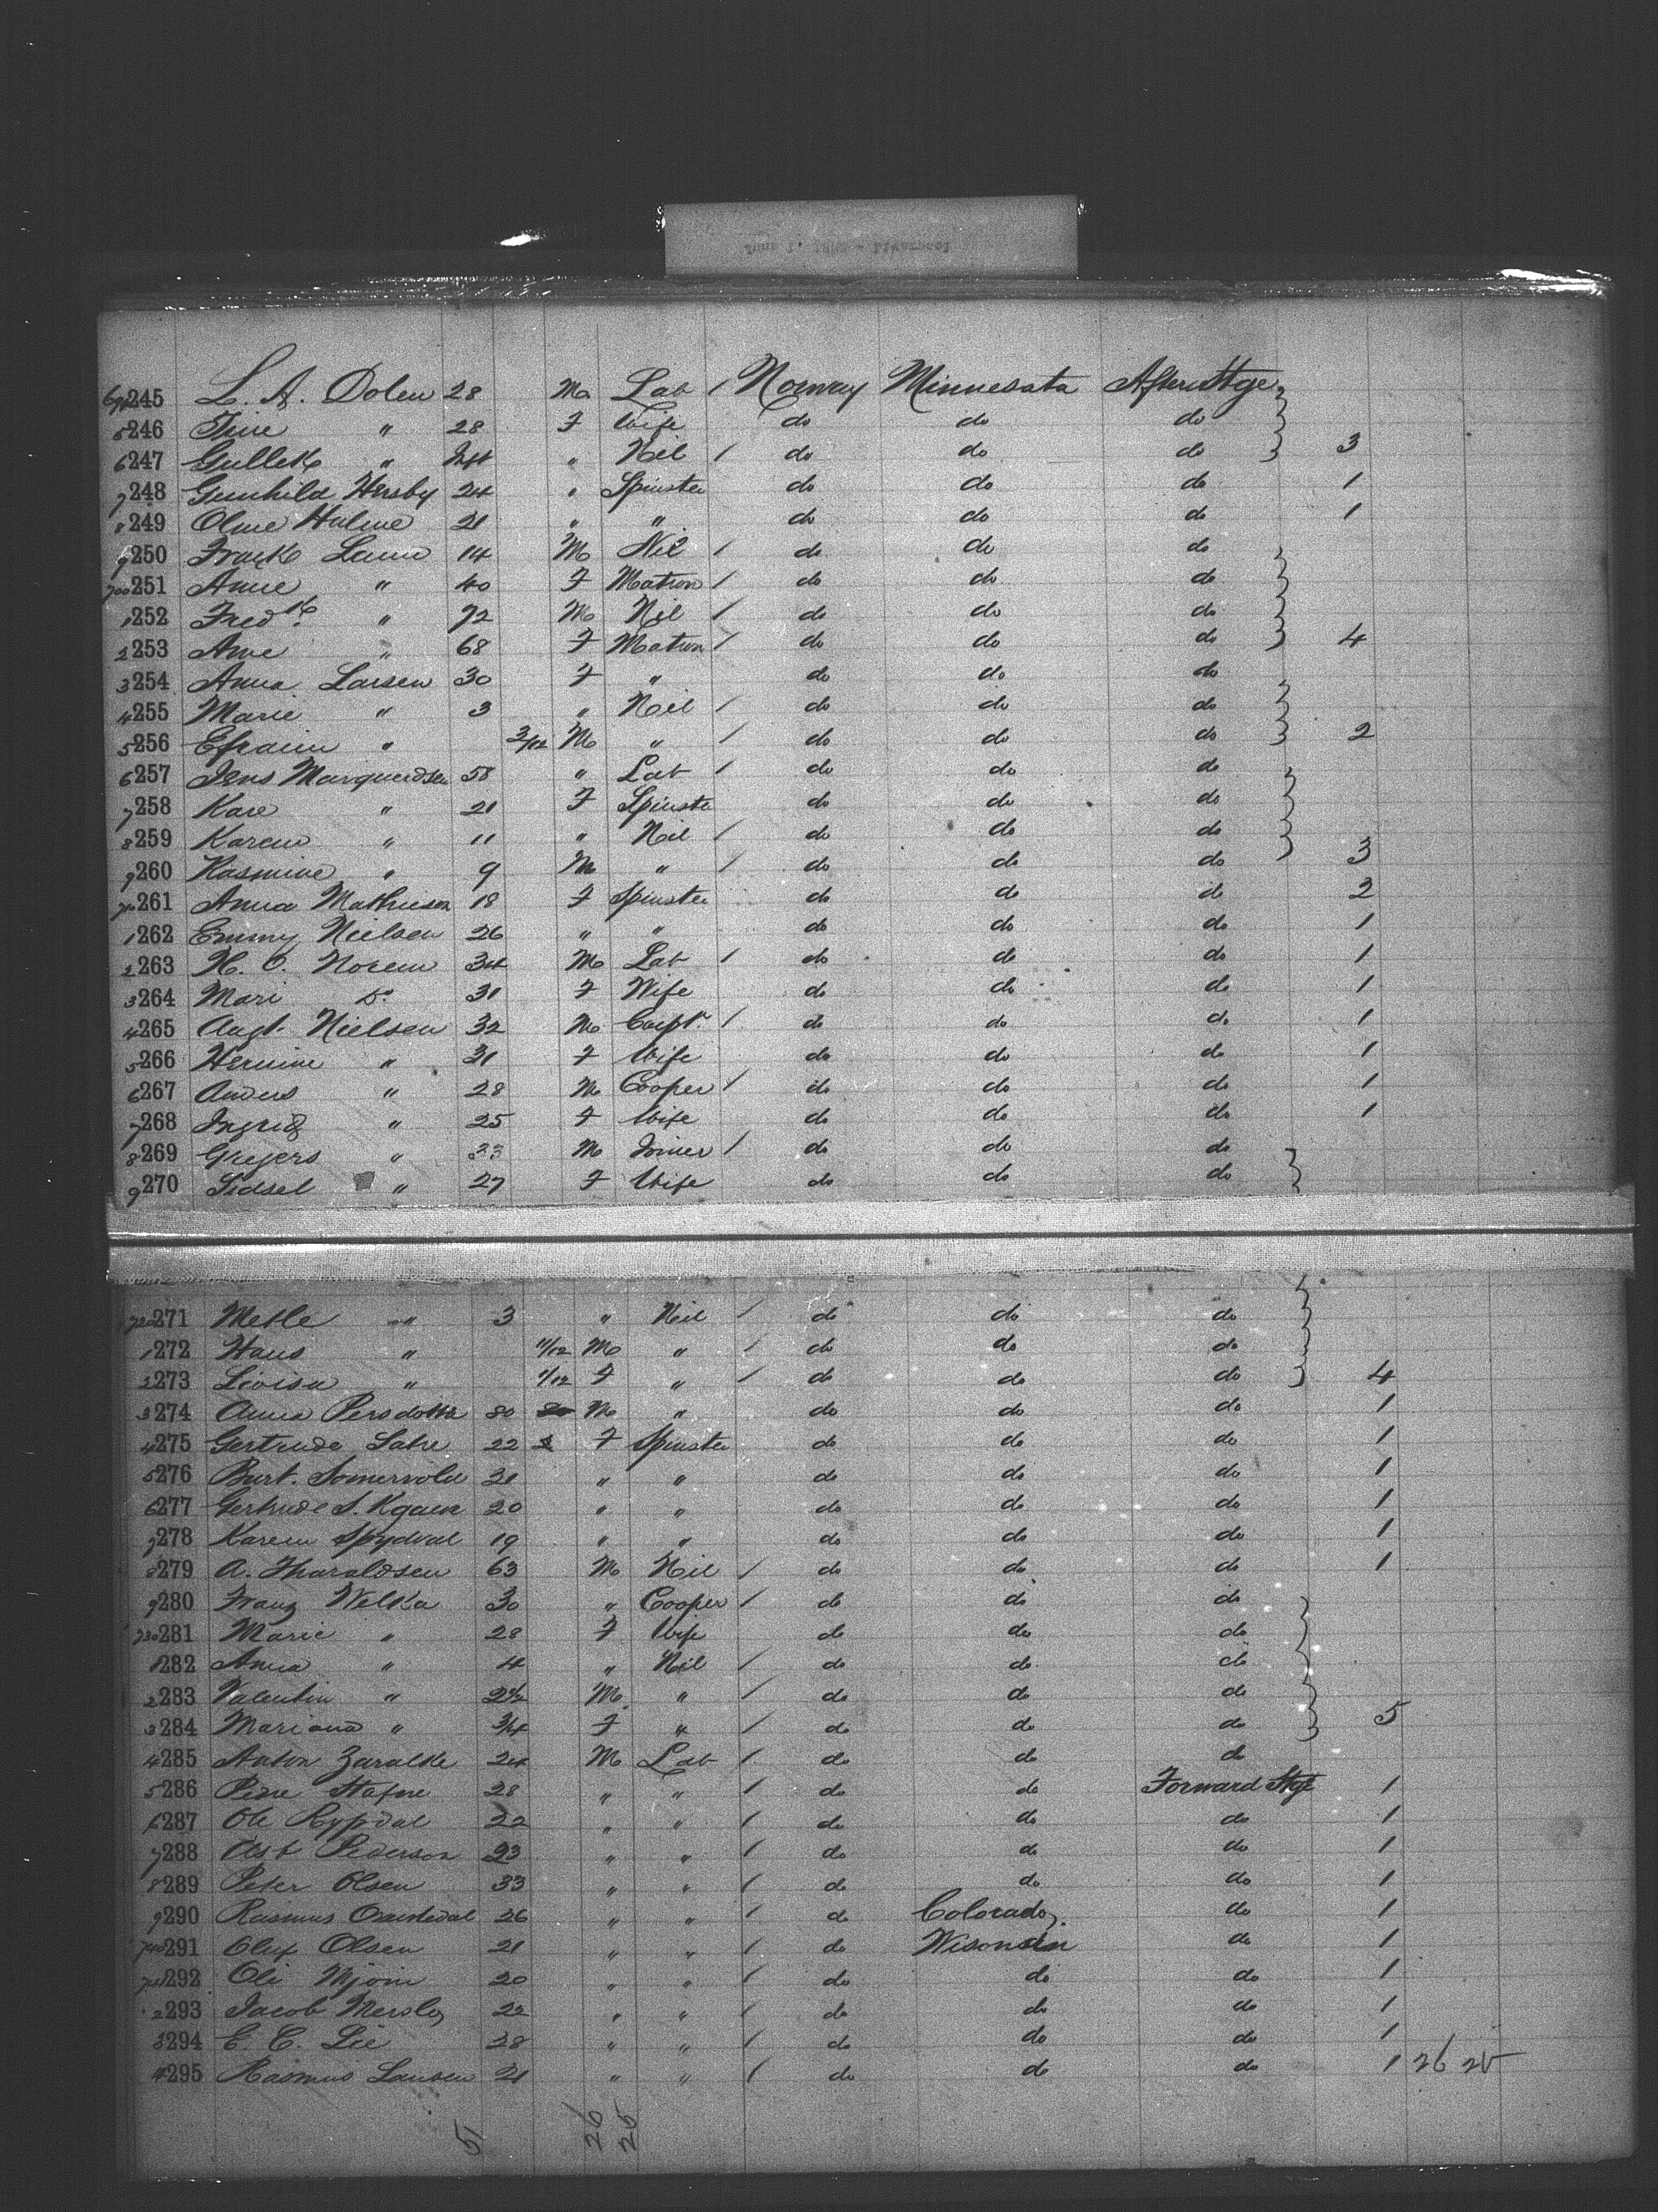 245 L. A. Dolen 28 M Lab / Norway Minnesota Afterstge
246 Tine " 28 F Wife do do do
247 Gullek " " Nil / do do do 3
248 Gunhild Hersby 24 " Spinster do do do 1
249 Oline Hulme 21 " " do do do 1
250 Lunn 14 M Nil / do do do
251 Anne " 40 F Matron / do do do
252 Fredk " 72 M Nil / do do do
253 Ane " 68 F Matron / do do do 4
254 Anna Larsen 30 F " do do do
255 Marie " 3 " Neil / do do do
256 Efraim " 3/12 M " / do do do 2
257 Jens Marquardsen 58 " Lab / do do do
258 Kare " 21 F Spinster do do do
259 Karen " 11 " Neil / do do do 3
260 Rasmine " 9 M " / do do do
261 Anna Mathiesen 18 F Spinster do do do 2
262 Emmy Nielsen 26 " " do do do 1
263 H. O. Norem 34 M Lab / do do do 1
264 Mari Do 31 F Wife do do do 1
265 Augt. Nielsen 32 M Carpt. / do do do 1
266 Hermine " 31 F Wife do do do 1
267 Anders " 28 M Cooper / do do do 1
268 Ingrid " 25 F Wife do do do 1
269 Gregers " 33 M Joiner / do do do
270 Sidsel " 27 F Wife do do do
271 Metle " 3 " Neil / do do do
272 Hans " 11/12 M " / do do do
273 Lovisa " 1/12 F " / do do do 4
274 Anna Persdotta 80 M " do do do 1
275 Gertrude Satre 22 F Spinster do do do 1
276 Burt. Somervold 31 " " do do do 1
277 Gertrude S. 20 " " do do do 1
278 Karen Spydval 19 " " do do do 1
279 A. Tharaldsen 63 M Neil / do do do 1
280 Franz Welka 30 " Cooper / do do do
281 Marie " 28 F Wife do do do
282 Anna " 4 " Neil / do do do
283 Valentin " 2 1/2 M " / do do do
284 Mariana " 3/4 F " / do do do 5
285 Anton Zaralke 24 M Lab / do do do
286 Peder Stafne 28 " " / do do Forward Stge 1
287 Ole Rypdal 22 " " / do do do 1
288 Asb Pederson 23 " " / do do do 1
289 Peter Olsen 33 " " / do do do 1
290 Rasmus 26 " " / do Colorado do 1
291 Oluf Olsen 21 " " / do Wisonsin do 1
292 Ole Mjoin 20 " " / do do do 1
293 Jacob 22 " " / do do do 1
294 E. C. Lie 28 " " / do do do 1
295 Rasmus Lansen 21 " " / do do do 1 26 25
51 26 25